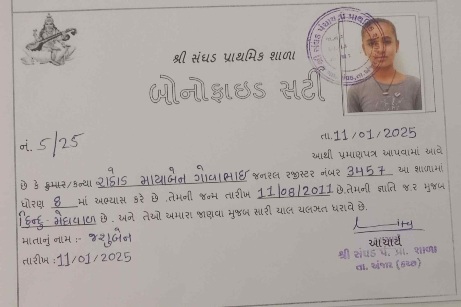 શ્રી સંઘડ પ્રાથમિક શાળા
બોનોફાઇડ સર્ટી
નં. 5/25
તા.11/01/2025
આથી પ્રમાણપત્ર આપવામાં આવે
છે કે કુમાર/કન્યા રાઠોડ માયાબેન ગોવાભાઇ જનરલ રજીસ્ટર નંબર 3457 આ શાળામાં
ધોરણ 8 માં અભ્યાસ કરે છે .તેમની જન્મ તારીખ 11/08/2011 છે.તેમની જ્ઞાતિ જ.ર મુજબ
હિન્દુ - મેઘવાળ છે . અને તેઓ અમારા જાણવા મુજબ સારી ચાલ ચલગત ધરાવે છે.
માતાનું નામ :- જશુબેન
તારીખ :11/01/2025
આચાર્ય
શ્રી સંઘડ પં. પ્રા. શાળા
તા. અંજાર (કચ્છ)